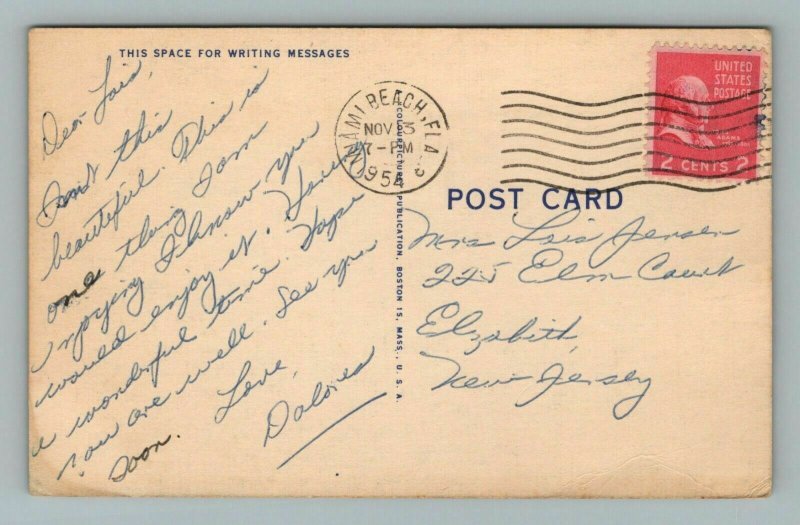 THIS SPACE FOR WRITING MESSAGES
Dear Lois,
Isn't this
beautiful. This is
one thing I am
enjoying I know you
would enjoy it. Having
a wonderful time. Hope
you are well. See you
soon. Love,
Dolores
COLOURPICTURE PUBLICATION, BOSTON 15, MASS., U.S.A.
MIAMI BEACH, FLA
NOV 13
7-PM
1954
UNITED
STATES
POSTAGE
ADAMS
2 CENTS 2
POST CARD
Mrs Lois Jensen
225 Elm Court
Elizabeth,
New Jersey